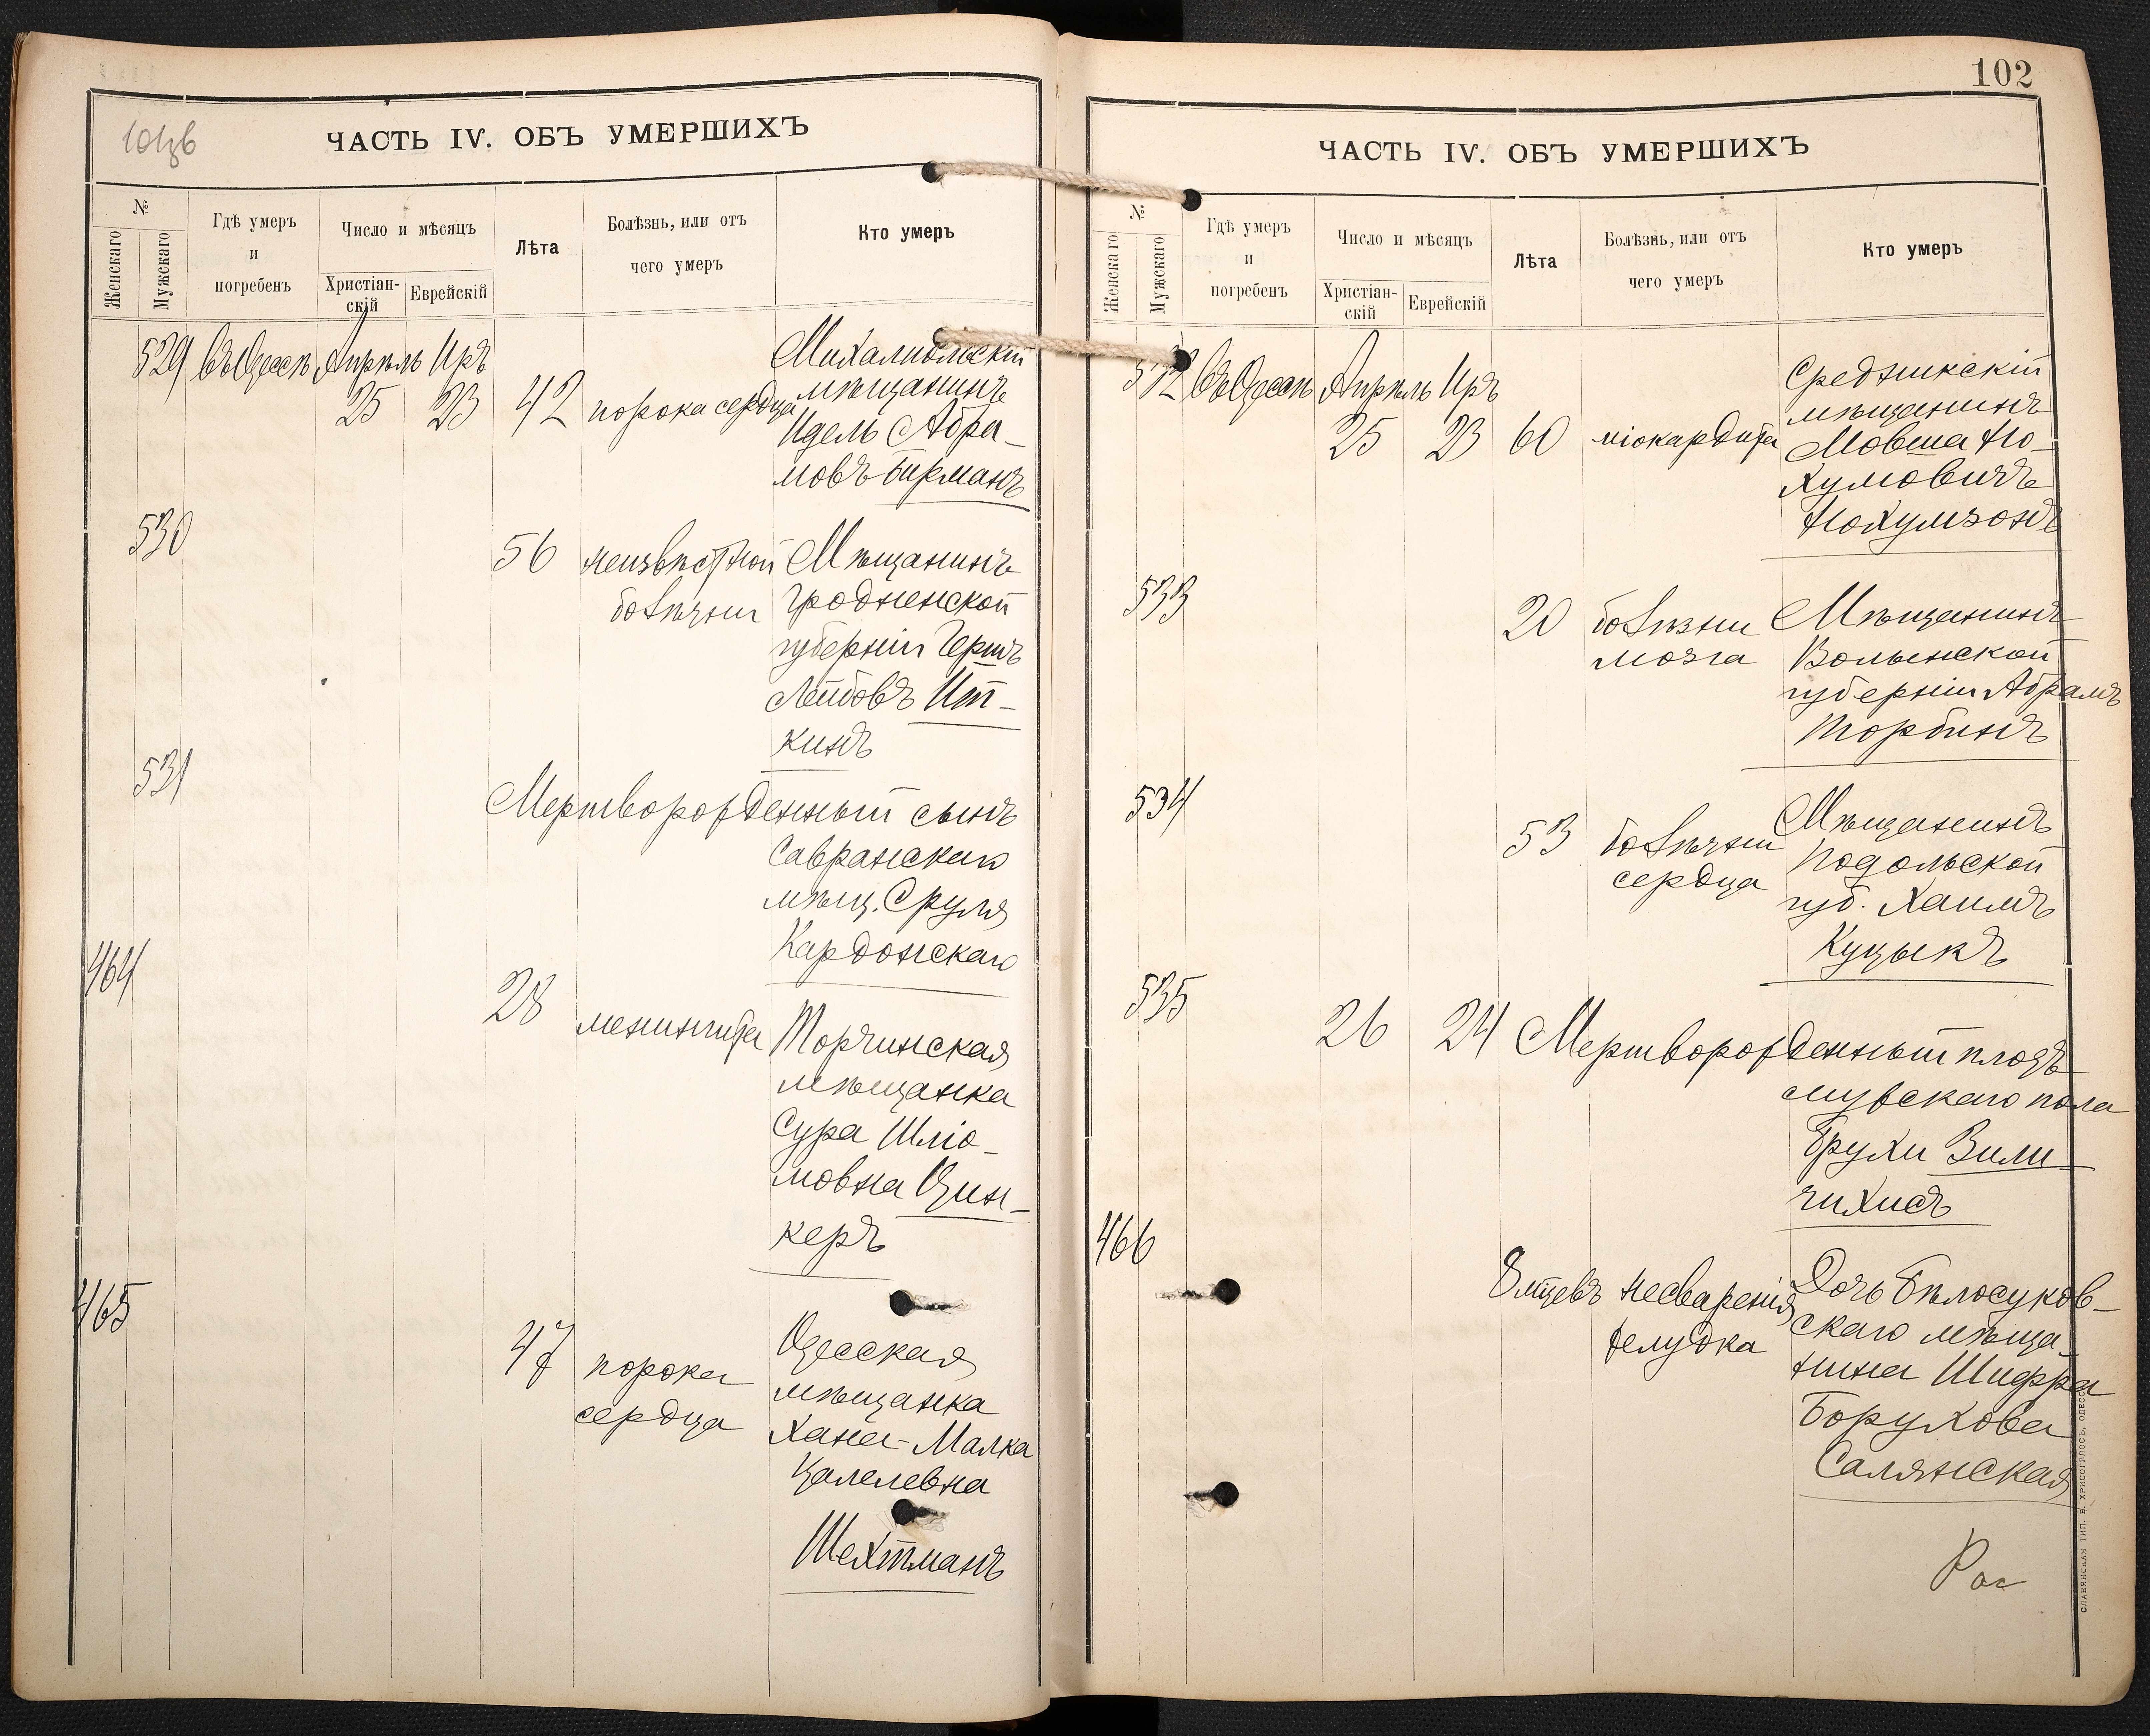 101зв
ЧАСТЬ IV. ОБЪ УМЕРШИХЪ
№
Женскаго
Мужскаго
Гдѣ умеръ
и
погребенъ
Число и мѣсяцъ
Христіан-
скій
Еврейскій
Лѣта
Болѣзнь, или отъ
чего умеръ
Кто умеръ
529 въ Одессѣ Апрѣль Иръ Михалпольскій
25 23 42 порока сердца мѣщанинъ
Идель Абра-
мовъ Бирманъ
530
56 неизвѣстной Мѣщанинъ
болѣзни Гродненской
губерніи Гершъ
Лейбовъ Ит-
кинъ
531
Мертворожденный сынъ
Савранскаго
мѣщ. Сруля
Кардонскаго
464
28 менингита Торчинская
мѣщанка
Сура Шліо-
мовна Цин-
керъ
465
47 порока Одесская
сердца мѣщанка
Хана-Малка
Цалелевна
Шехтманъ
102
ЧАСТЬ IV. ОБЪ УМЕРШИХЪ
№
Женскаго
Мужскаго
Гдѣ умеръ
и
погребенъ
Число и мѣсяцъ
Христіан-
скій
Еврейскій
Лѣта
Болѣзнь, или отъ
чего умеръ
Кто умеръ
532 въ Одессѣ Апрѣль Иръ Средникскій
мѣщанинъ
25 23 60 міокардита Мовша Но-
хумовичъ
Нохумзонъ
533
20 болѣзни Мѣщанинъ
мозга Волынской
губерніи Абрамъ
Торбинъ
534
53 болѣзни Мѣщанинъ
сердца Подольской
губ. Хаимъ
Куцыкъ
535
26 24 Мертворожденный плодъ
мужскаго пола
Брухи Зили-
чихисъ
466
8 мцевъ несваренія Дочь Бѣлосуков-
желудка скаго мѣща-
нина Шифра
Борухова
Салянская
СЛАВЯНСКАЯ ТИП. Н. ХРИСОГЕЛОСЪ, ОДЕССА